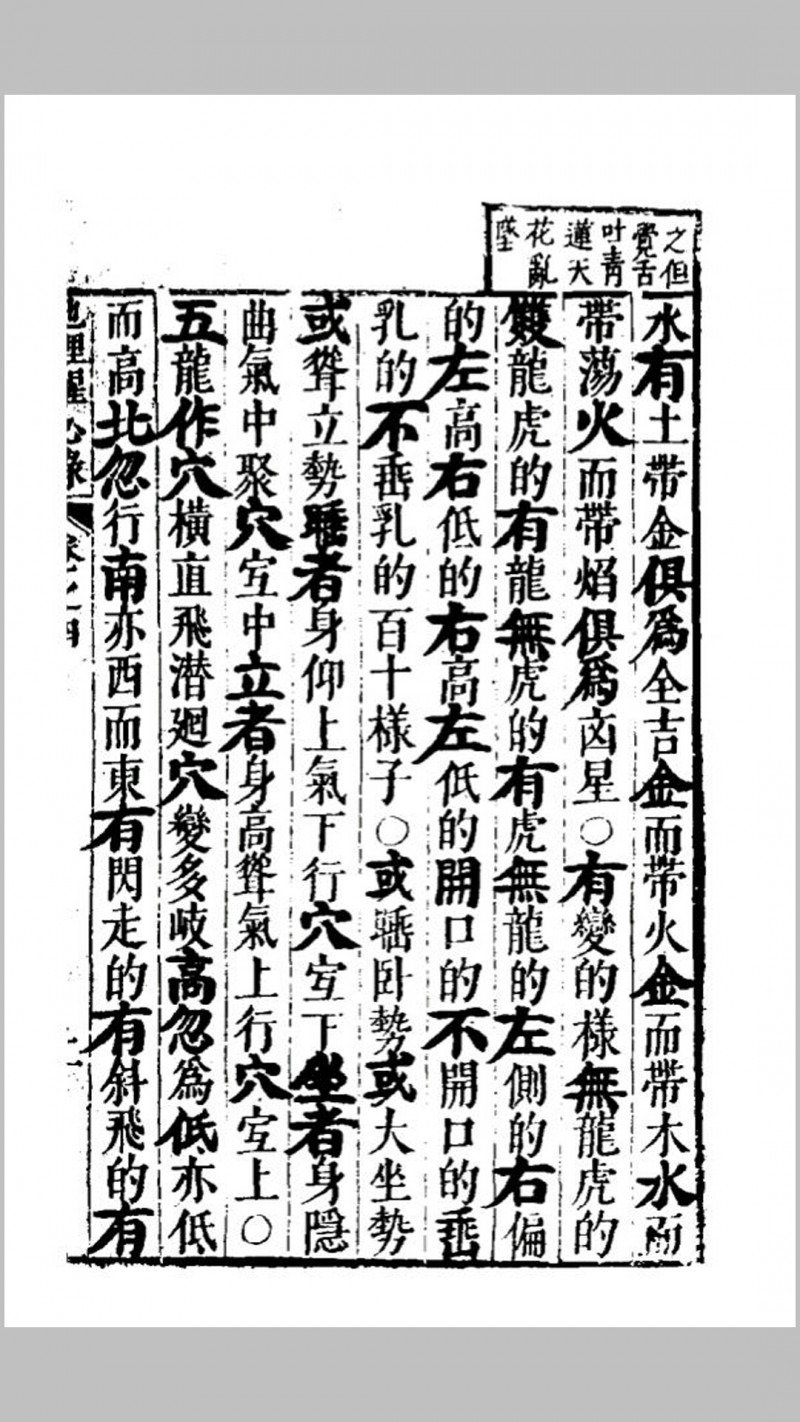 之但
覺舌
吐青
蓮天
花亂
墜
水有土帶金俱爲全吉金而帶火金而帶木水而
帶蕩火而帶焰俱爲凶星○有變的樣無龍虎的
雙龍虎的有龍無虎的有虎無龍的左側的右偏
的左高右低的右高左低的開口的不開口的垂
乳的不垂乳的百十樣子○或臥勢或大坐勢
或聳立勢者身仰上氣下行穴宜下坐者身隱
曲氣中聚穴宜中立者身高聳氣上行穴宜上○
五龍作穴橫直飛潜廻穴變多岐高忽爲低亦低
而高北忽行南亦西而東有閃走的有斜飛的有
地理醒心錄 卷之四